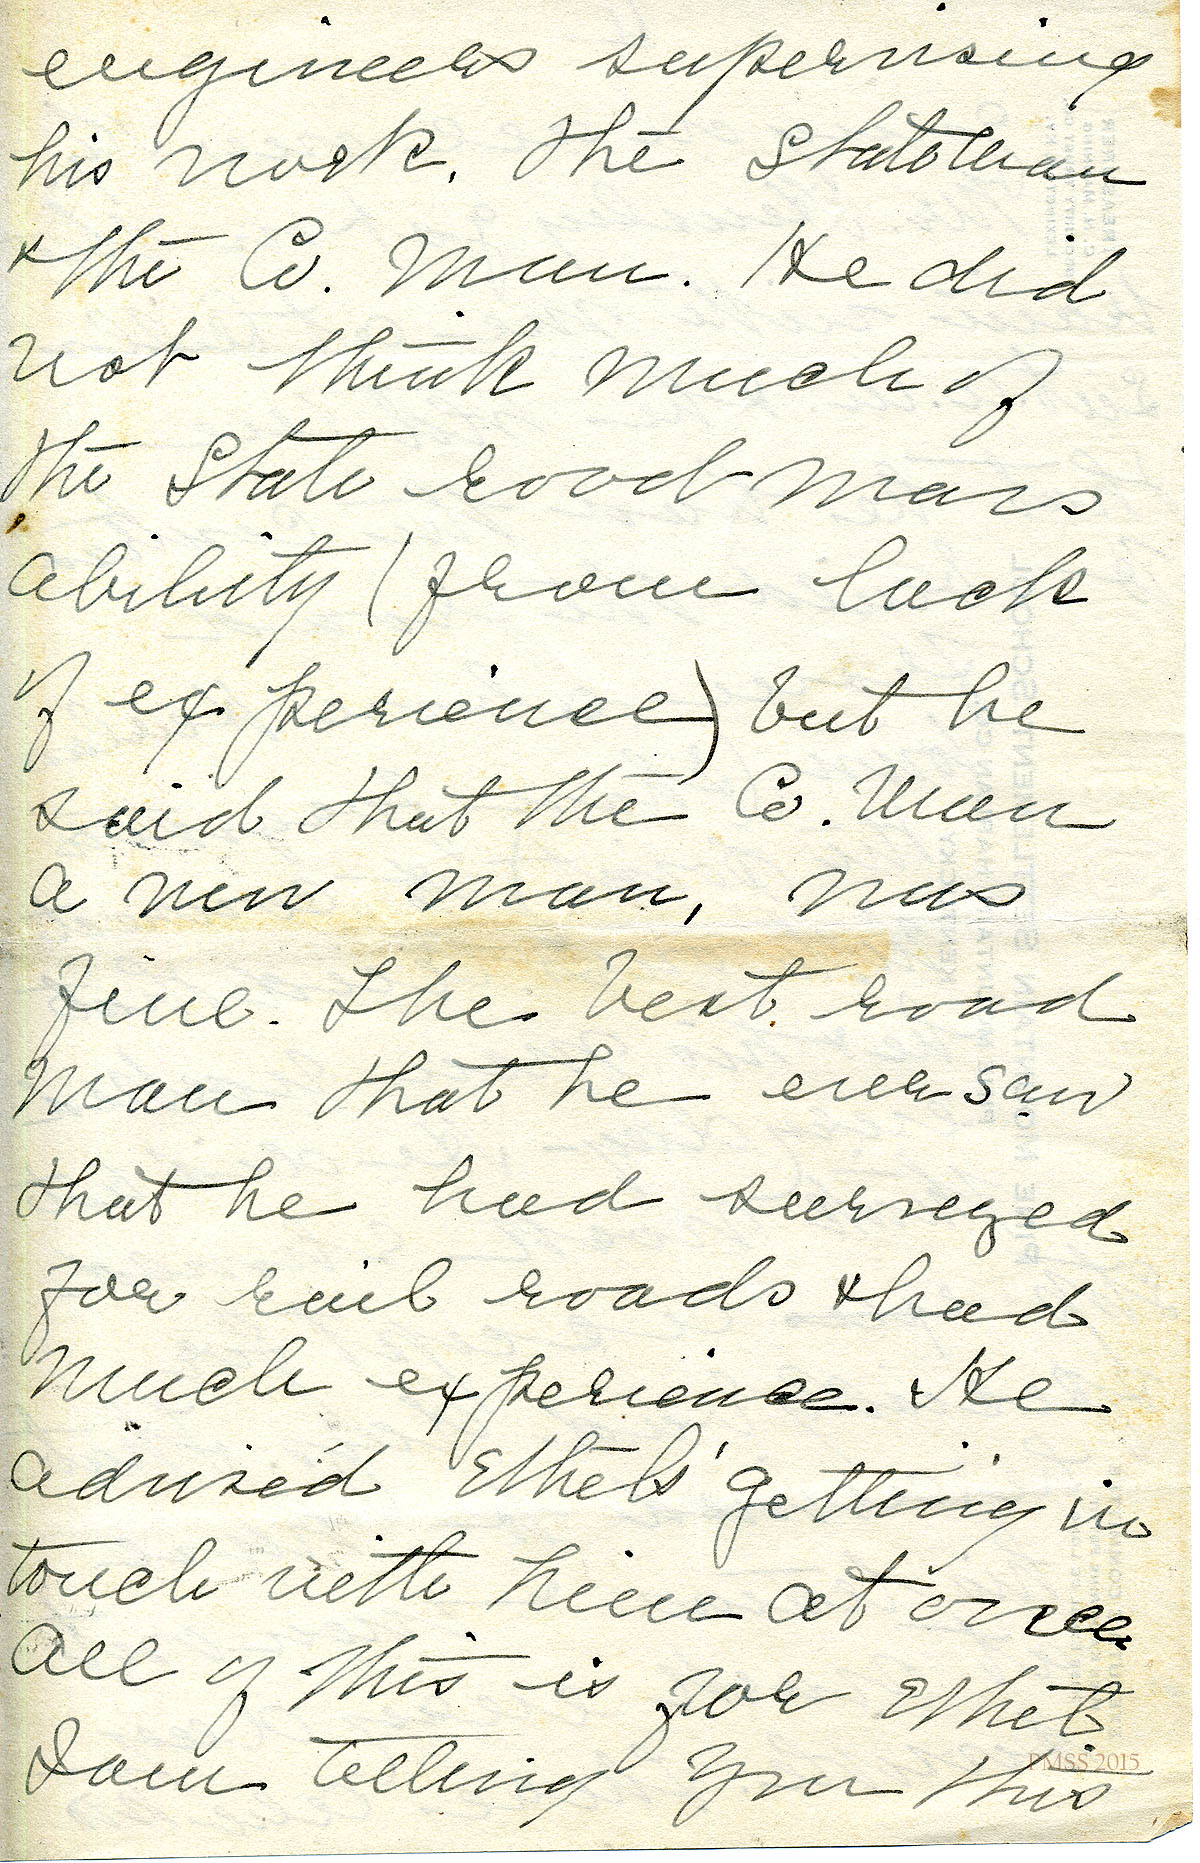 engineers supervising
his work. The State Man
& the Co. Man. He did
not think much of
the State road mans
ability (from lack
of experience) but he
said that the Co. Man
a new man, was
fine. The best road
man that he ever saw
that he had surveyed
for rail roads & had
much experience. He
advised Ethels' getting in
touch with him at once
All of this is for Ethel
I am telling you this
PMSS 2015